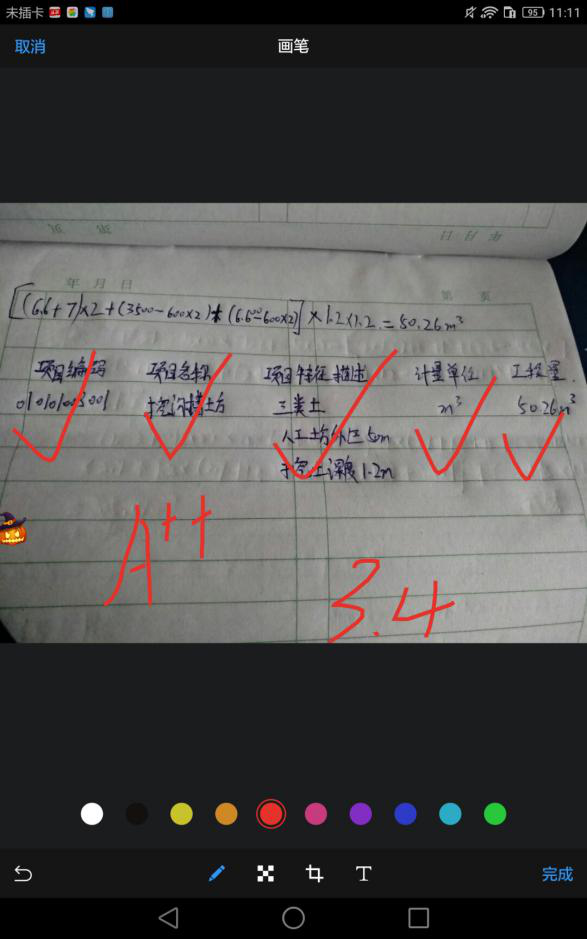 未插卡 95 11:11
取消 画笔
年 月 日 第 页
[(6.6+7)×2+(3500-600×2)+(6.6-600×2)]×1.2×1.2=50.26m³
项目编码 项目名称 项目特征描述 计量单位 工程量
010101003001 挖沟槽土方 三类土 m³ 50.26m³
人工土方外运50m
挖土深度1.2m
A++
3.4
T 完成